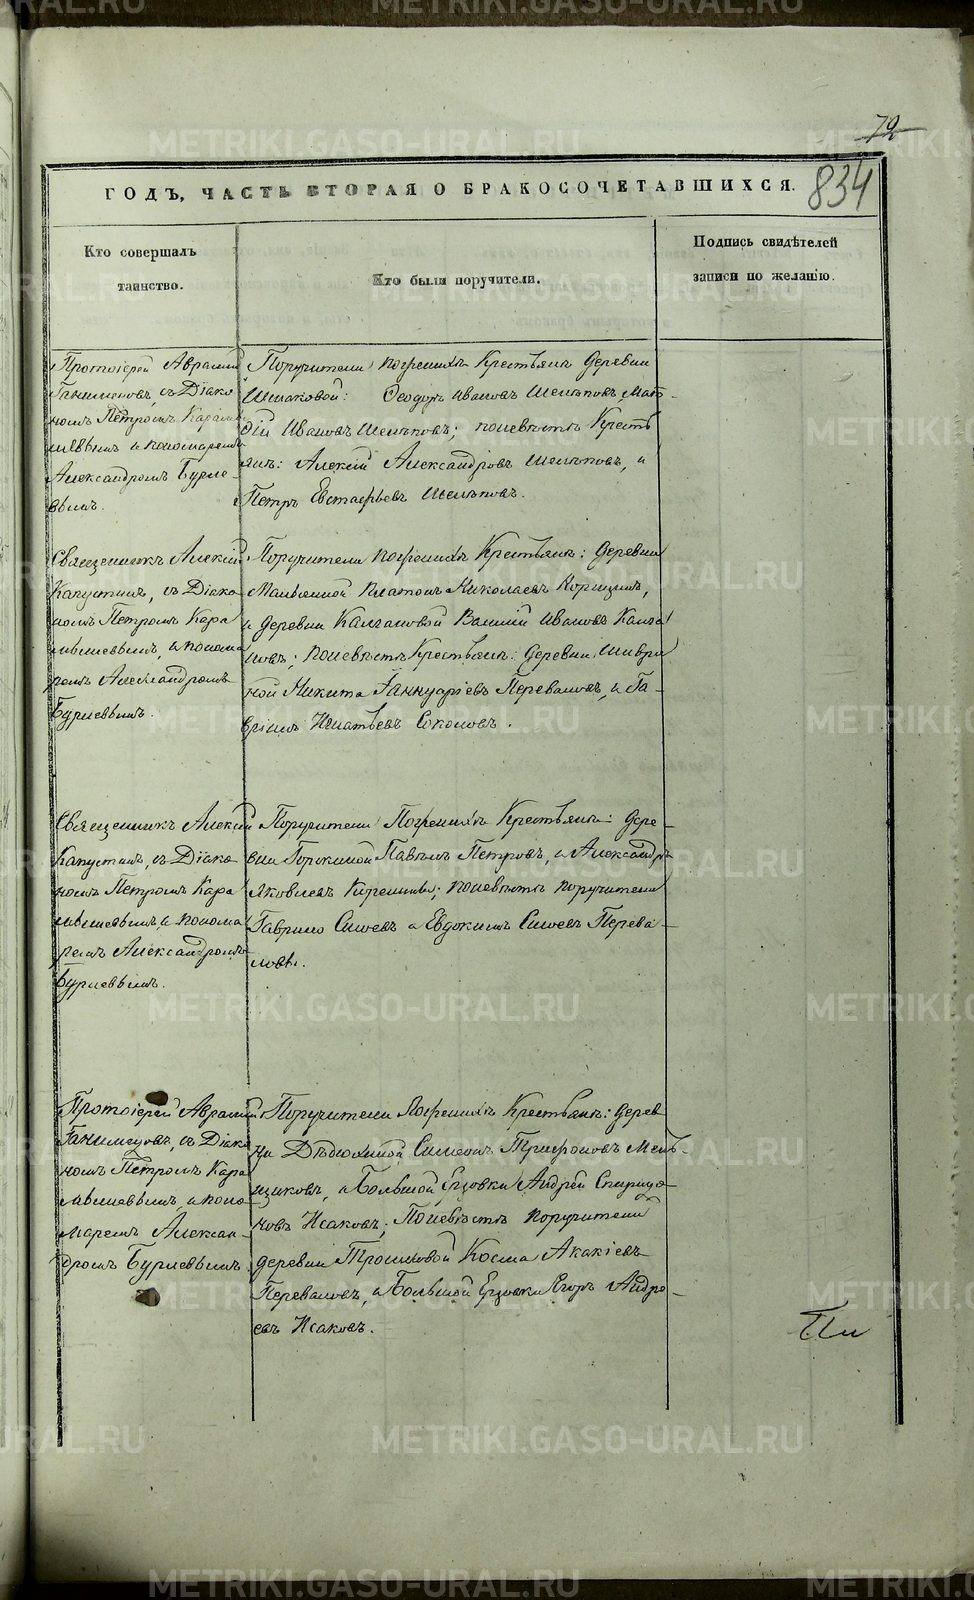 72
ГОДЪ, ЧАСТЬ ВТОРАЯ О БРАКОСОЧЕТАВШИХСЯ.
834
Кто совершалъ
таинство.
Кто были поручители.
Подпись свидѣтелей
записи по желанію.
Протоіерей Аврамій
съ Діако
номъ Петромъ Карал
и пономаремъ
Александромъ Бурле
вымъ.
Поручители по женихѣ Крестьяне деревни
Шмаковой: Ѳеодоръ Ивановъ Шелѣповъ, Мат
ѳій Ивановъ Шелѣповъ; по невѣстѣ Кресть
яне: Алексій Александровъ Шелѣповъ, и
Петръ Евстафьевъ Шелѣповъ.
Священникъ Алексій
Капустинъ, съ Діако
номъ Петромъ Кара
и понома
ремъ Александромъ
Бурлевымъ.
Поручители по женихѣ Крестьяне: деревни
Платонъ Николаевъ
и деревни Калгановой Василій Ивановъ Калга
новъ; по невѣстѣ Крестьяне: деревни
ной Никита Іаннуаріевъ Переваловъ, и Га-
вріилъ Игнатьевъ Соколовъ.
Священникъ Алексій
Капустинъ, съ Діако
номъ Петромъ Кара
и понома
ремъ Александромъ
Бурлевымъ.
Поручители по женихѣ Крестьяне: дере-
вни Горскиной Павелъ Петровъ, и Александръ
Яковлевъ по невѣстѣ поручители
Гаврило Сысоевъ и Евдокимъ Сысоевъ Перева-
ловы.
Протоіерей Аврамій
съ Діако
номъ Петромъ Кара
и поно
маремъ Алексан-
дромъ Бурлевымъ.
Поручители по женихѣ Крестьяне: дерев
ни Дѣдюхиной Симеонъ Трифоновъ Мель-
щиковъ, и Большой Ерзовки Андрей Спиридо-
новъ Исаковъ; по невѣстѣ поручители
деревни Трошковой Косма Акакіевъ
Переваловъ, и Большой Ерзовки Егоръ Андре-
евъ Исаковъ.